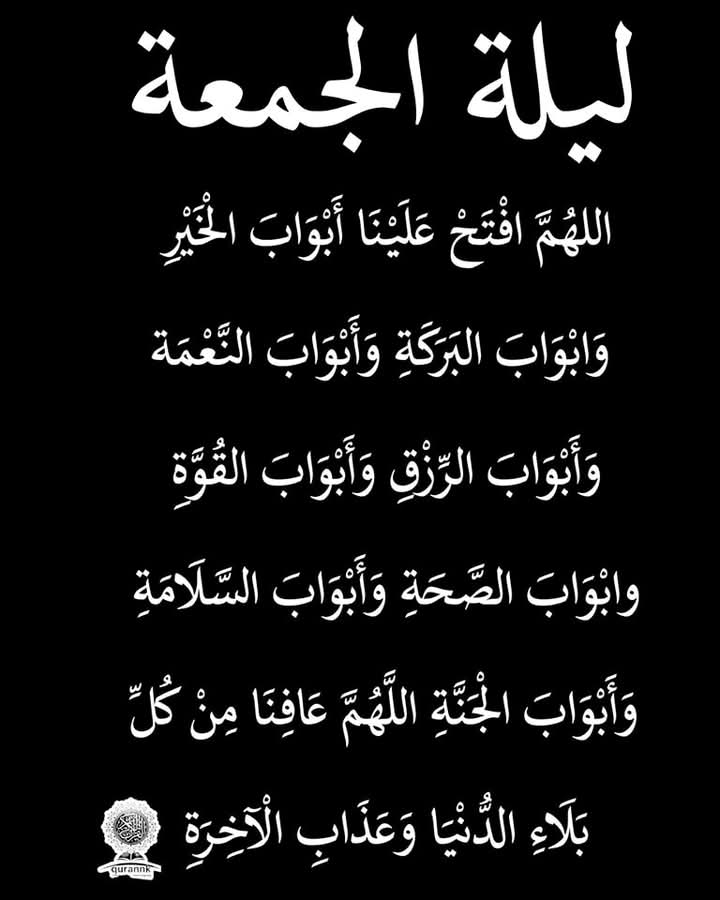 ليلة الجمعة
اللهُمَّ افْتَحْ عَلَيْنَا أَبْوَابَ الْخَيْرِ
وَابْوَابَ البَرَكَةِ وَأَبْوَابَ النَّعْمَة
وَأَبْوَابَ الرِّزْقِ وَأَبْوَابَ القُوَّةِ
وابْوَابَ الصَّحَةِ وَأَبْوَابَ السَّلَامَةِ
وَأَبْوَابَ الْجَنَّةِ اللَّهُمَّ عَافِنَا مِنْ كُلِّ
بَلَاءِ الدُّنْيَا وَعَذَابِ الْآخِرَةِ
qurannk